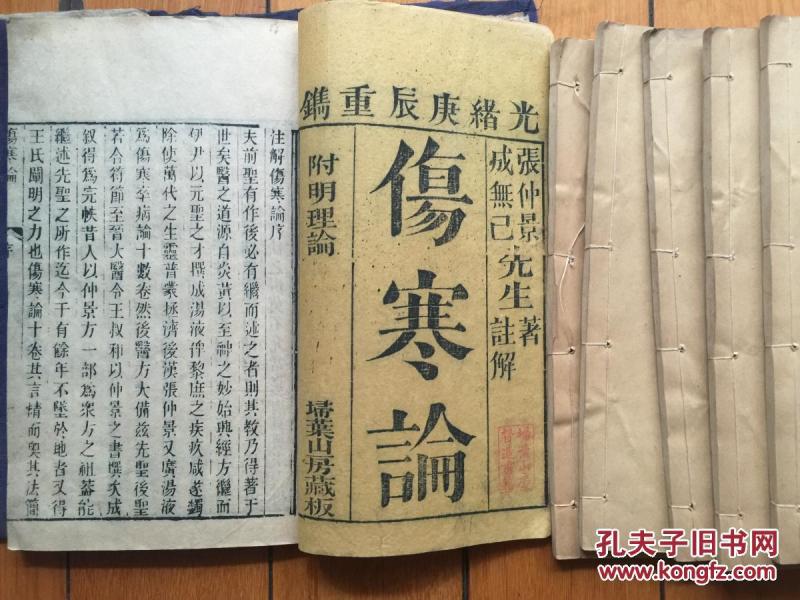 光緒庚辰重鐫
張仲景
成無己
先生
著
註解
傷寒論
附明理論
埽葉山房藏板
注解傷寒論序
夫前聖有作後必有繼而述之者則其教乃得著于
世矣醫之道源自炎黃以至神之妙始興經方繼而
伊尹以元聖之才撰成湯液俾黎庶之疾疚咸遂蠲
除使萬代之生靈普蒙拯濟後漢張仲景又廣湯液
爲傷寒卒病論十數卷然後醫方大備茲先聖後聖
若合符節至晉大醫令王叔和以仲景之書撰次成
叙得爲完帙昔人以仲景方一部爲衆方之祖蓋能
繼述先聖之所作迄今千有餘年不墜於地者又得
王氏闡明之力也傷寒論十卷其言精而奧其法簡
傷寒論 序
孔夫子旧书网
www.kongfz.com